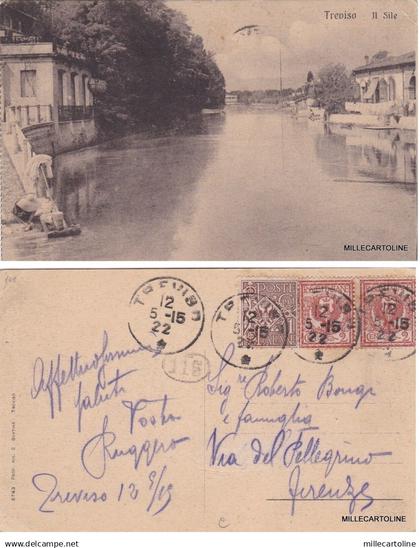 Treviso Il Sile
MILLECARTOLINE
TREVISO
12
5-15
22
TREVISO
12
5-15
22
TREVISO
12
5-15
22
TREVISO
12
5-15
22
POSTE
116
Affettuosissimi
saluti
Vostro
Ruggero
Treviso 12 5/15
Sig.r Roberto Bongi
e famiglia
Via del Pellegrino
Firenze
MILLECARTOLINE
delcampe.net
millecartoline